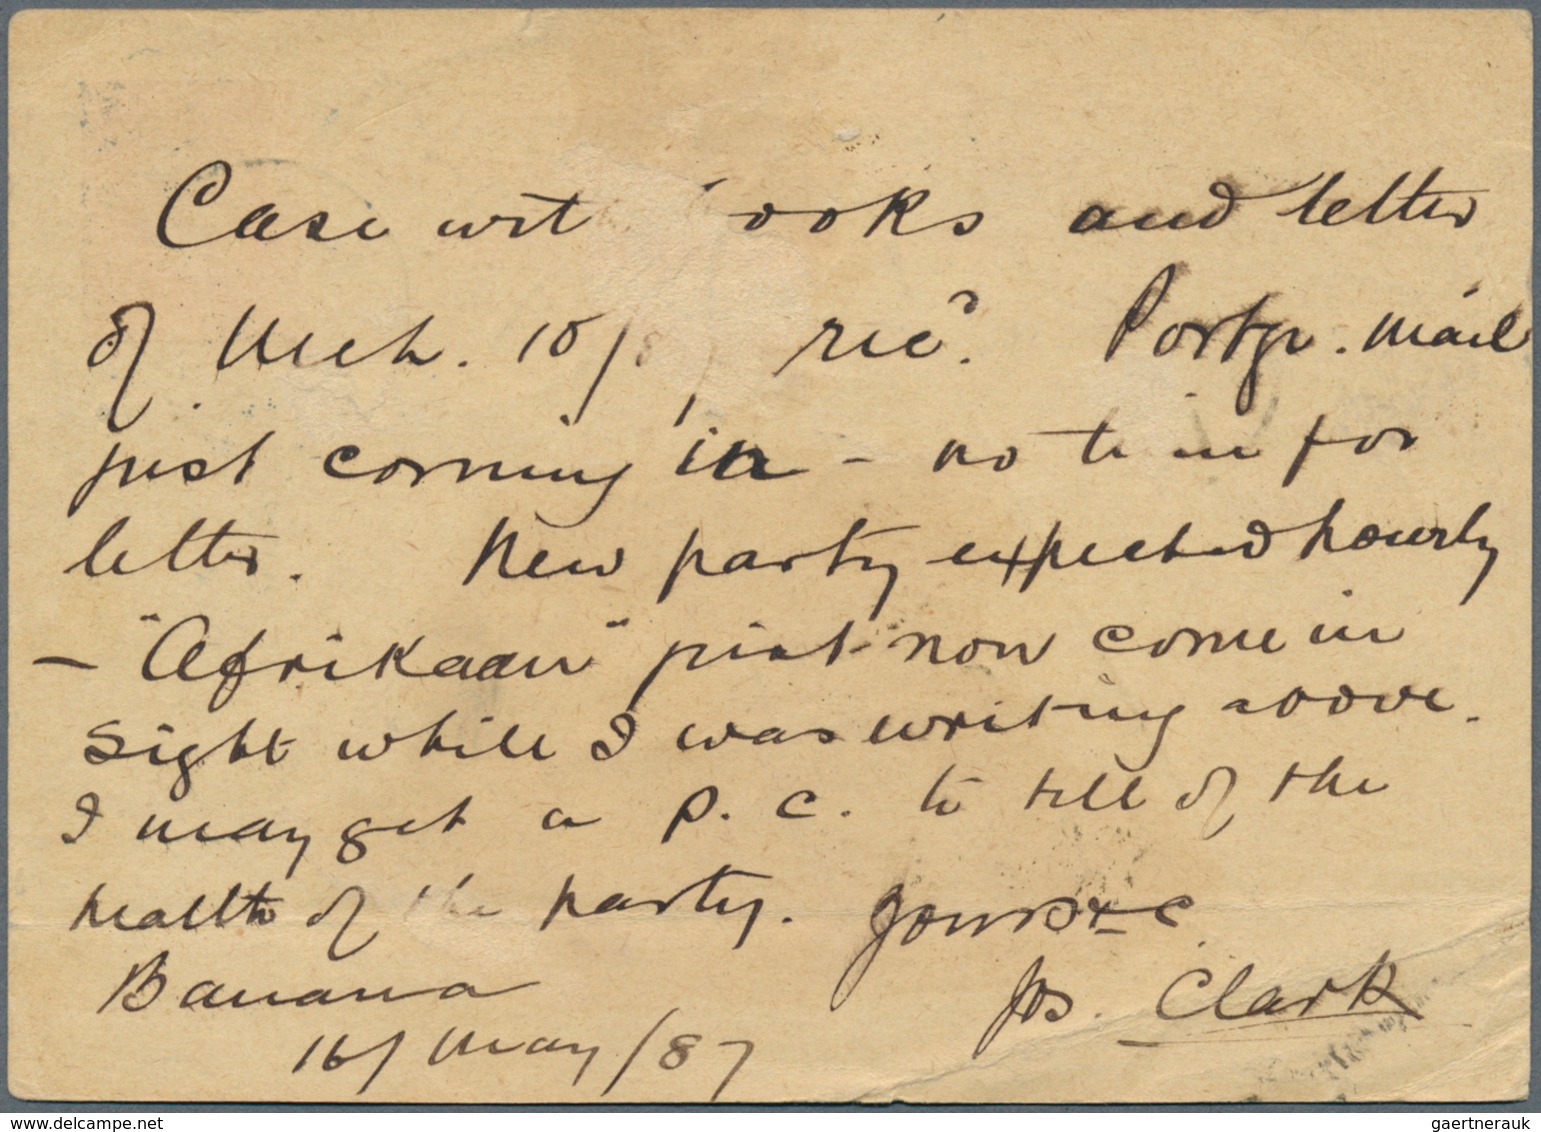 Case wit ooks and letter
of Mch. 10/8 rec?. Portgu. mail
just coming in – no time for
letter. New party expected hourly
– "Afrikaan" just now come in
sight while I was writing above.
I may get a P. C. to tell of the
health of the party. Yours &c
Banana Jos. Clark
16/ May /87
delcampe.net
gaertnerauk